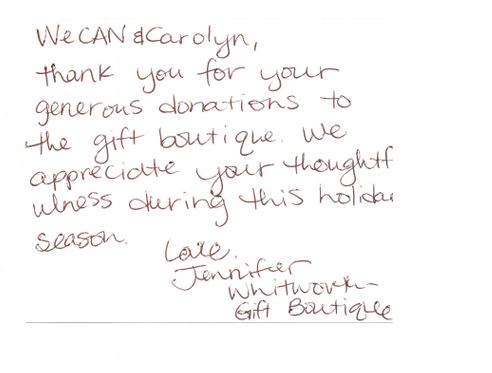 WeCAN & Carolyn,
thank you for your
generous donations to
the gift boutique. We
appreciate your thoughtf
ulness during this holida
season.
Love,
Jennifer
Whitworth
Gift Boutique